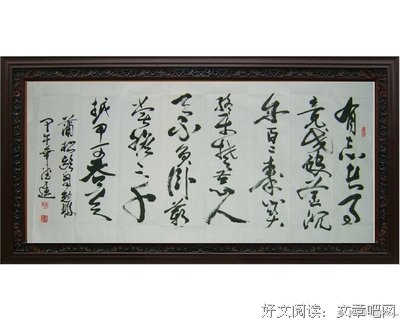 有志者事
竟成破釜沉
舟百二秦关
终属楚苦心人
天不负卧薪
尝胆三千
越甲可吞吴
蒲松龄自勉联
甲午年
好文阅读：文章吧网